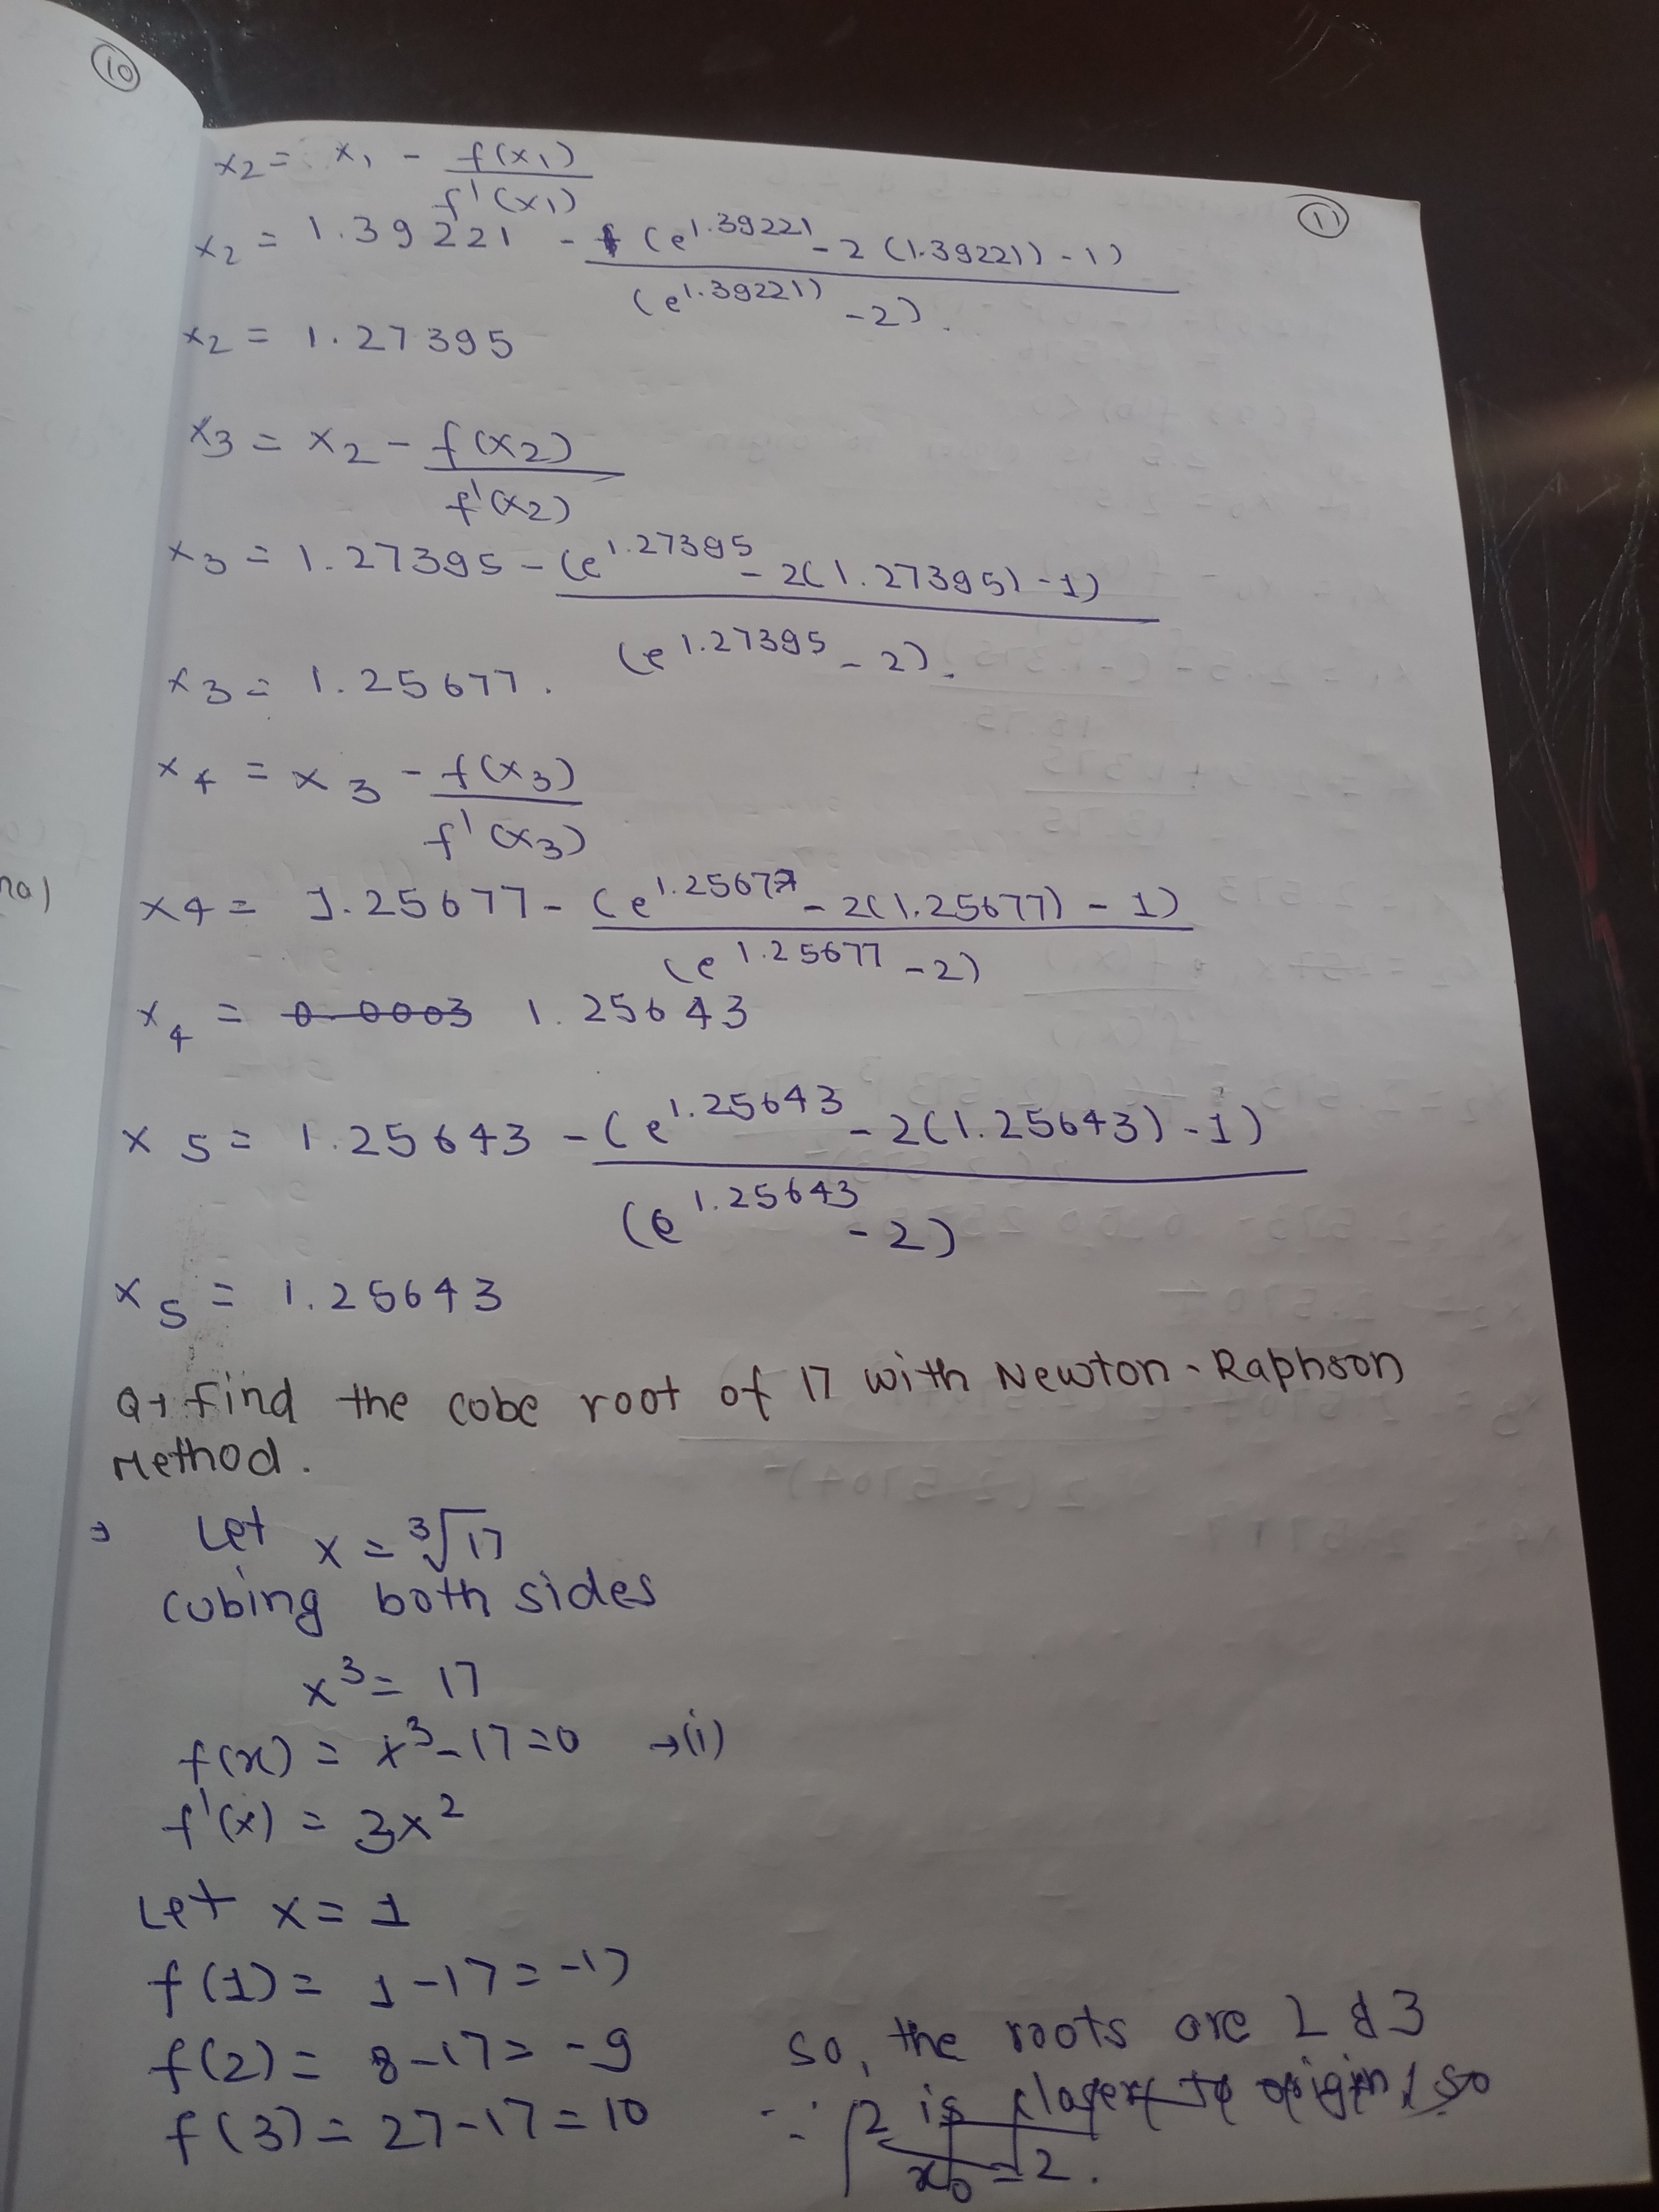 10
11
x2 = x1 - f(x1)
f'(x1)
x2 = 1.39221 - (e^1.39221 - 2(1.39221) - 1)
(e^1.39221) - 2).
x2 = 1.27395
x3 = x2 - f(x2)
f'(x2)
x3 = 1.27395 - (e^1.27395 - 2(1.27395) - 1)
(e^1.27395 - 2).
x3 = 1.25677.
x4 = x3 - f(x3)
f'(x3)
na)
x4 = 1.25677 - (e^1.25677 - 2(1.25677) - 1)
(e^1.25677 - 2)
x4 = 0.0003 1.25643
x5 = 1.25643 - (e^1.25643 - 2(1.25643) - 1)
(e^1.25643 - 2)
x5 = 1.25643
Q→ Find the cube root of 17 with Newton-Raphson
Method.
⇒ Let x = ³√17
cubing both sides
x³ = 17
f(x) = x³-17=0 →(i)
f'(x) = 3x²
Let x = 1
f(1) = 1-17 = -17
f(2) = 8-17 = -9
f(3) = 27-17 = 10
so, the roots are 2 & 3
∵ 2 is closer to origin, so
x0 = 2.